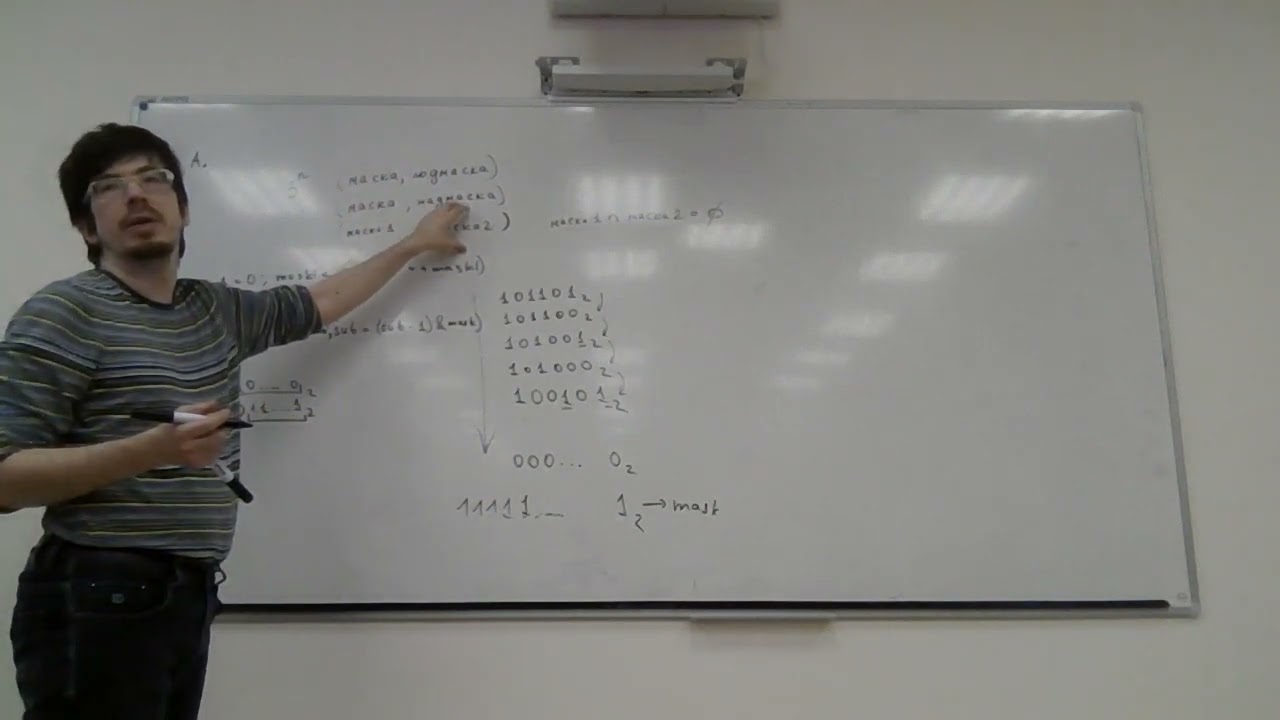 A.
3ⁿ (маска, подмаска)
(маска, надмаска)
(маска1 ска2) маска1 ∩ маска2 = ∅
1=0; mask1< ++mask1)
sub = (sub - 1) & mask)
0.... 0₂
11...1₂
101101₂
101100₂
101001₂
101000₂
100101₂
000... 0₂
11111... 1₂ → mask